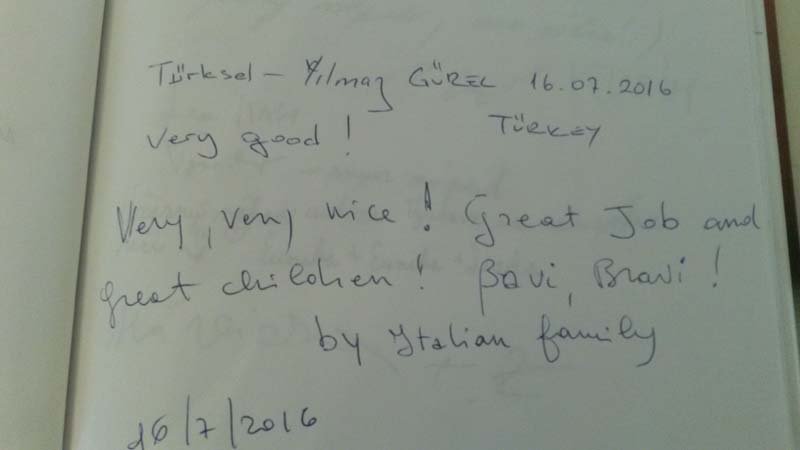 Türksel - Yılmaz GÜREL 16.07.2016
Very good! TÜRKEY
Very, very nice! Great Job and
great children! Bavi, Bravi!
by Italian family
16/7/2016